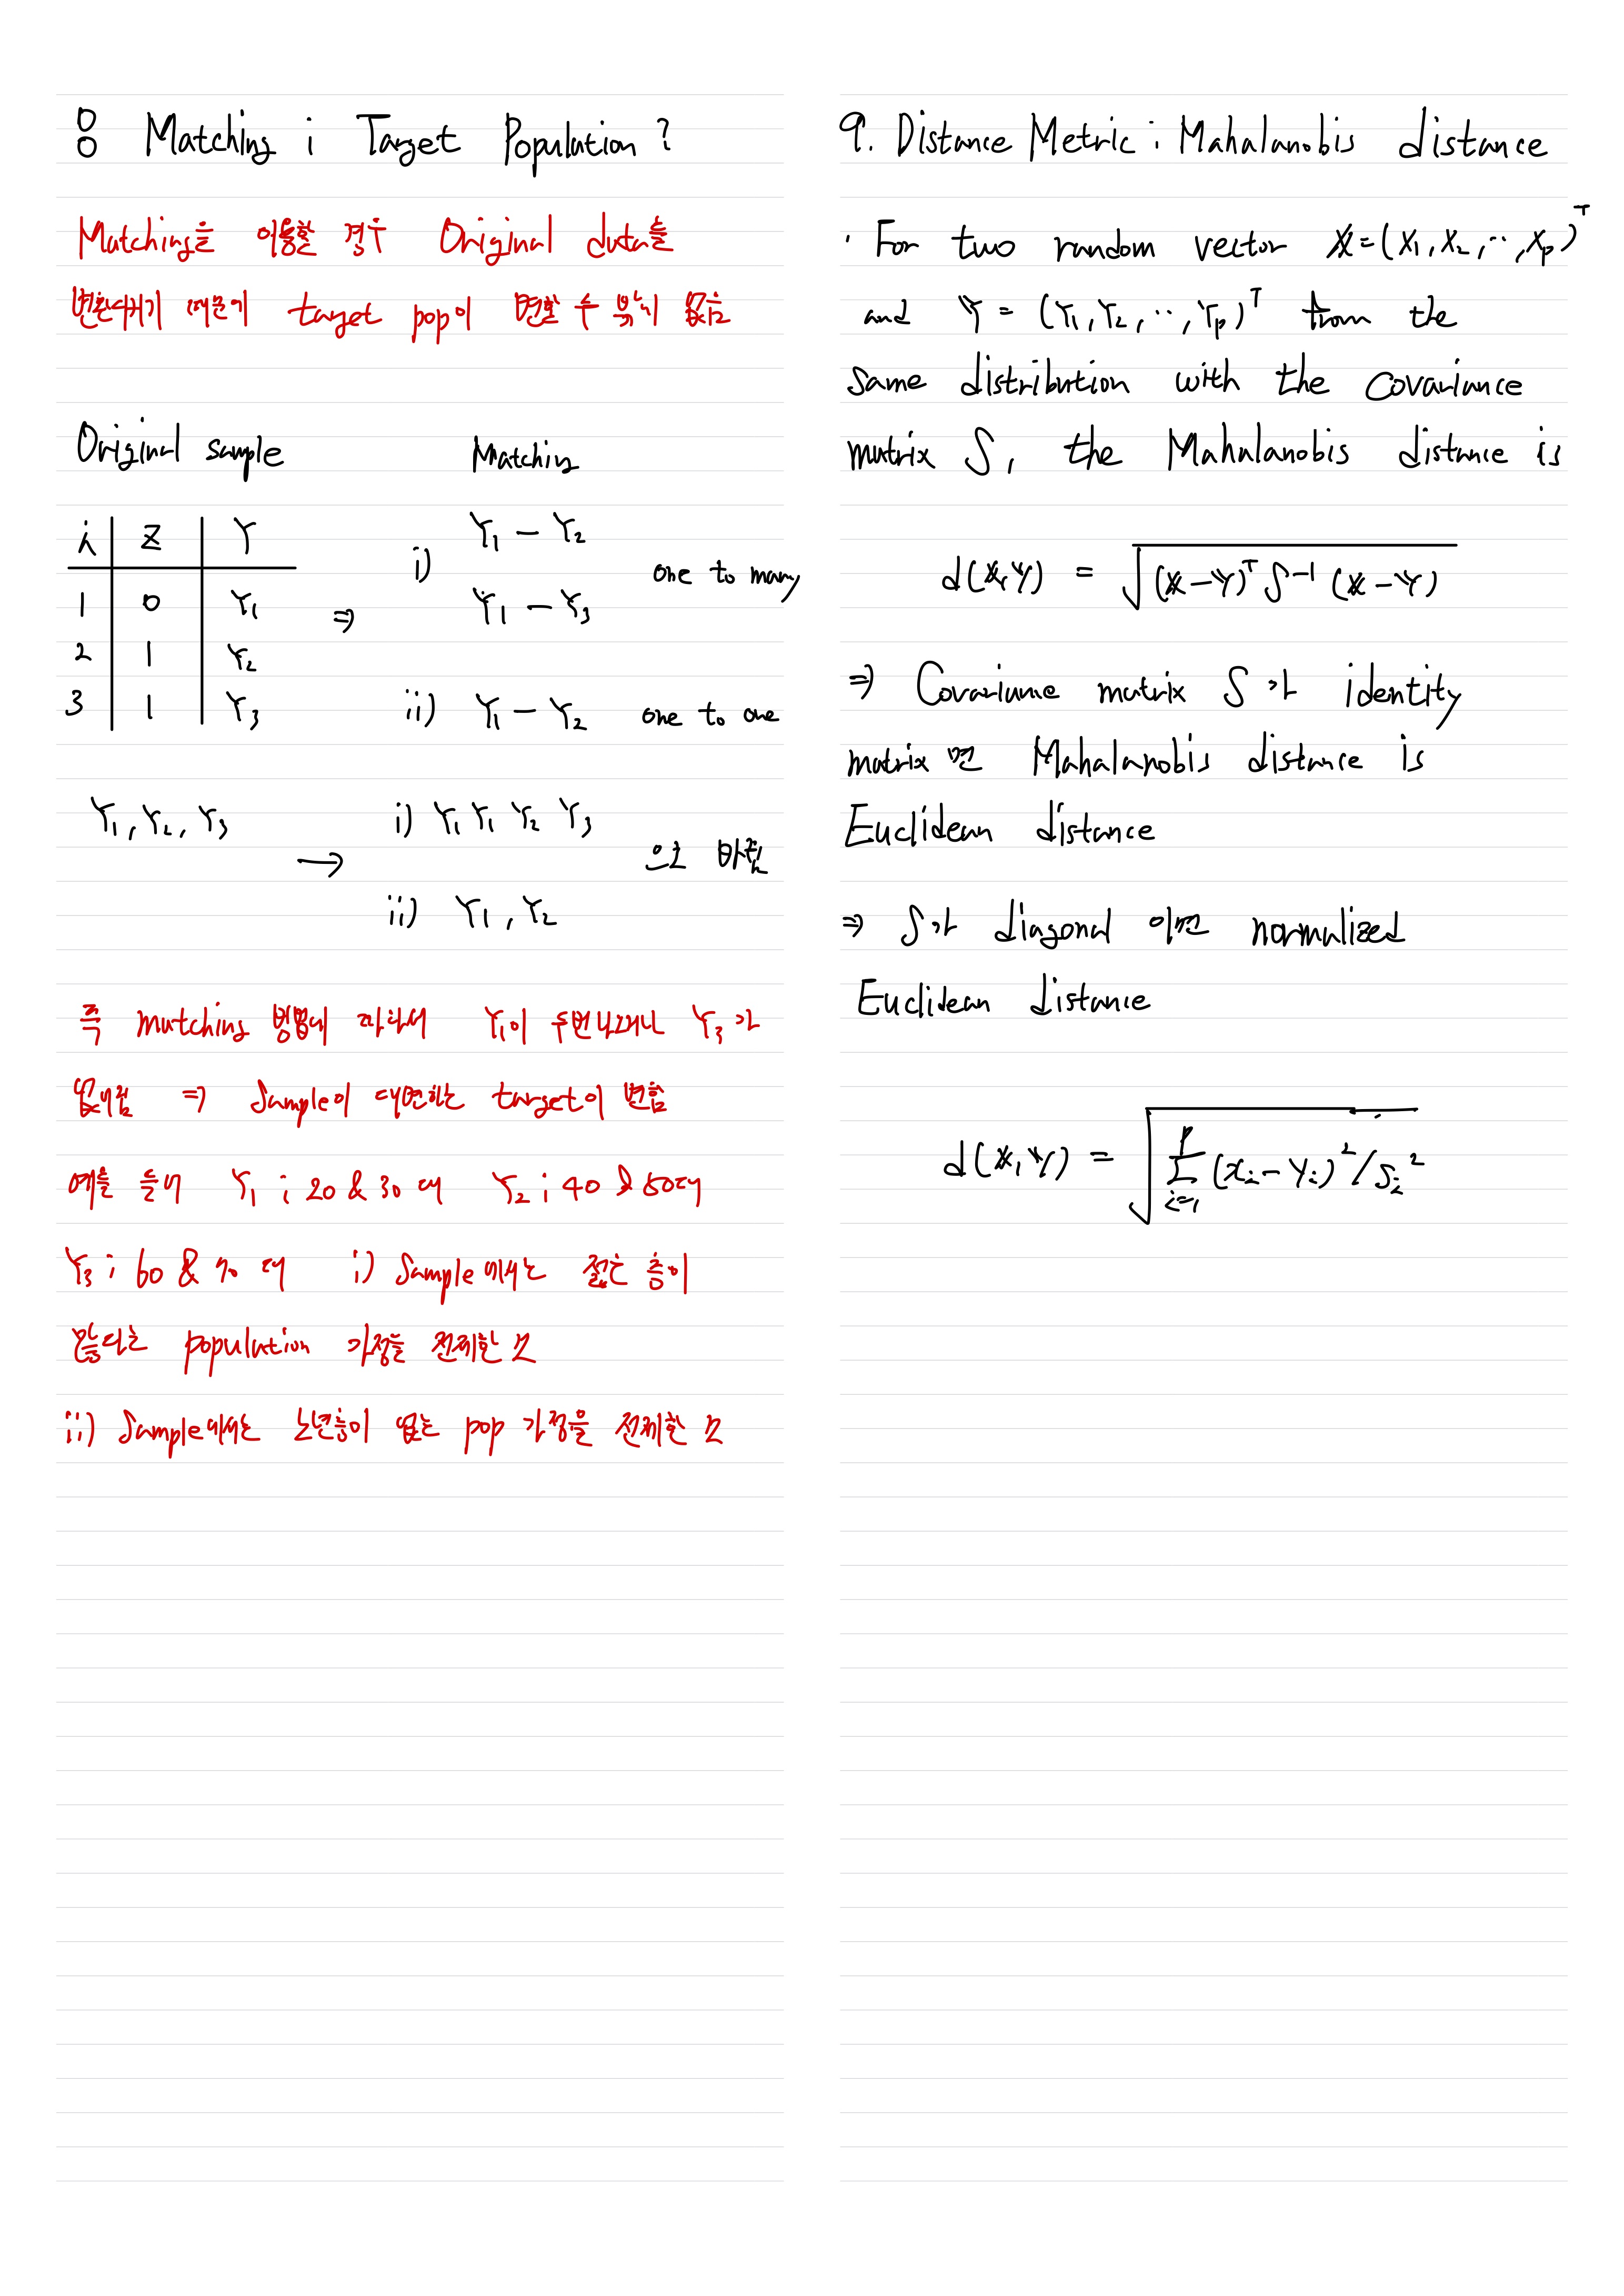 8 Matching : Target Population?
Matching을 이용할 경우 Original data를
변환시키기 때문에 target pop이 변할 수 밖에 없음
Original sample
i Z Y
1 0 Y₁
2 1 Y₂
3 1 Y₃
⇒
Matchin
i) Y₁ - Y₂
Y₁ - Y₃
one to many
ii) Y₁ - Y₂ one to one
Y₁, Y₂, Y₃ → i) Y₁ Y₁ Y₂ Y₃
ii) Y₁, Y₂
으로 바뀜
즉 matching 방법에 따라서 Y₁이 두번 나오거나 Y₃가
없어짐 ⇒ Sample이 대변하는 target이 변함
예를 들어 Y₁ : 20 & 30대 Y₂ : 40 & 50대
Y₃ : 60 & 70대 i) Sample에서는 젊은 층이
많다는 population 가정을 전제한 것
ii) Sample에서는 노년층이 없는 pop 가정을 전제한 것
9. Distance Metric : Mahalanobis distance
· For two random vector X = (X₁, X₂, ··, Xₚ)ᵀ
and Y = (Y₁, Y₂, ··, Yₚ)ᵀ from the
same distribution with the Covariance
matrix S, the Mahalanobis distance is
d(X, Y) = √((X-Y)ᵀ S⁻¹ (X-Y))
⇒ Covariance matrix S가 identity
matrix면 Mahalanobis distance is
Euclidean distance
⇒ S가 diagonal 이면 normalized
Euclidean distance
d(X, Y) = √(Σᵢ₌₁ᵖ (xᵢ - yᵢ)² / sᵢ²)